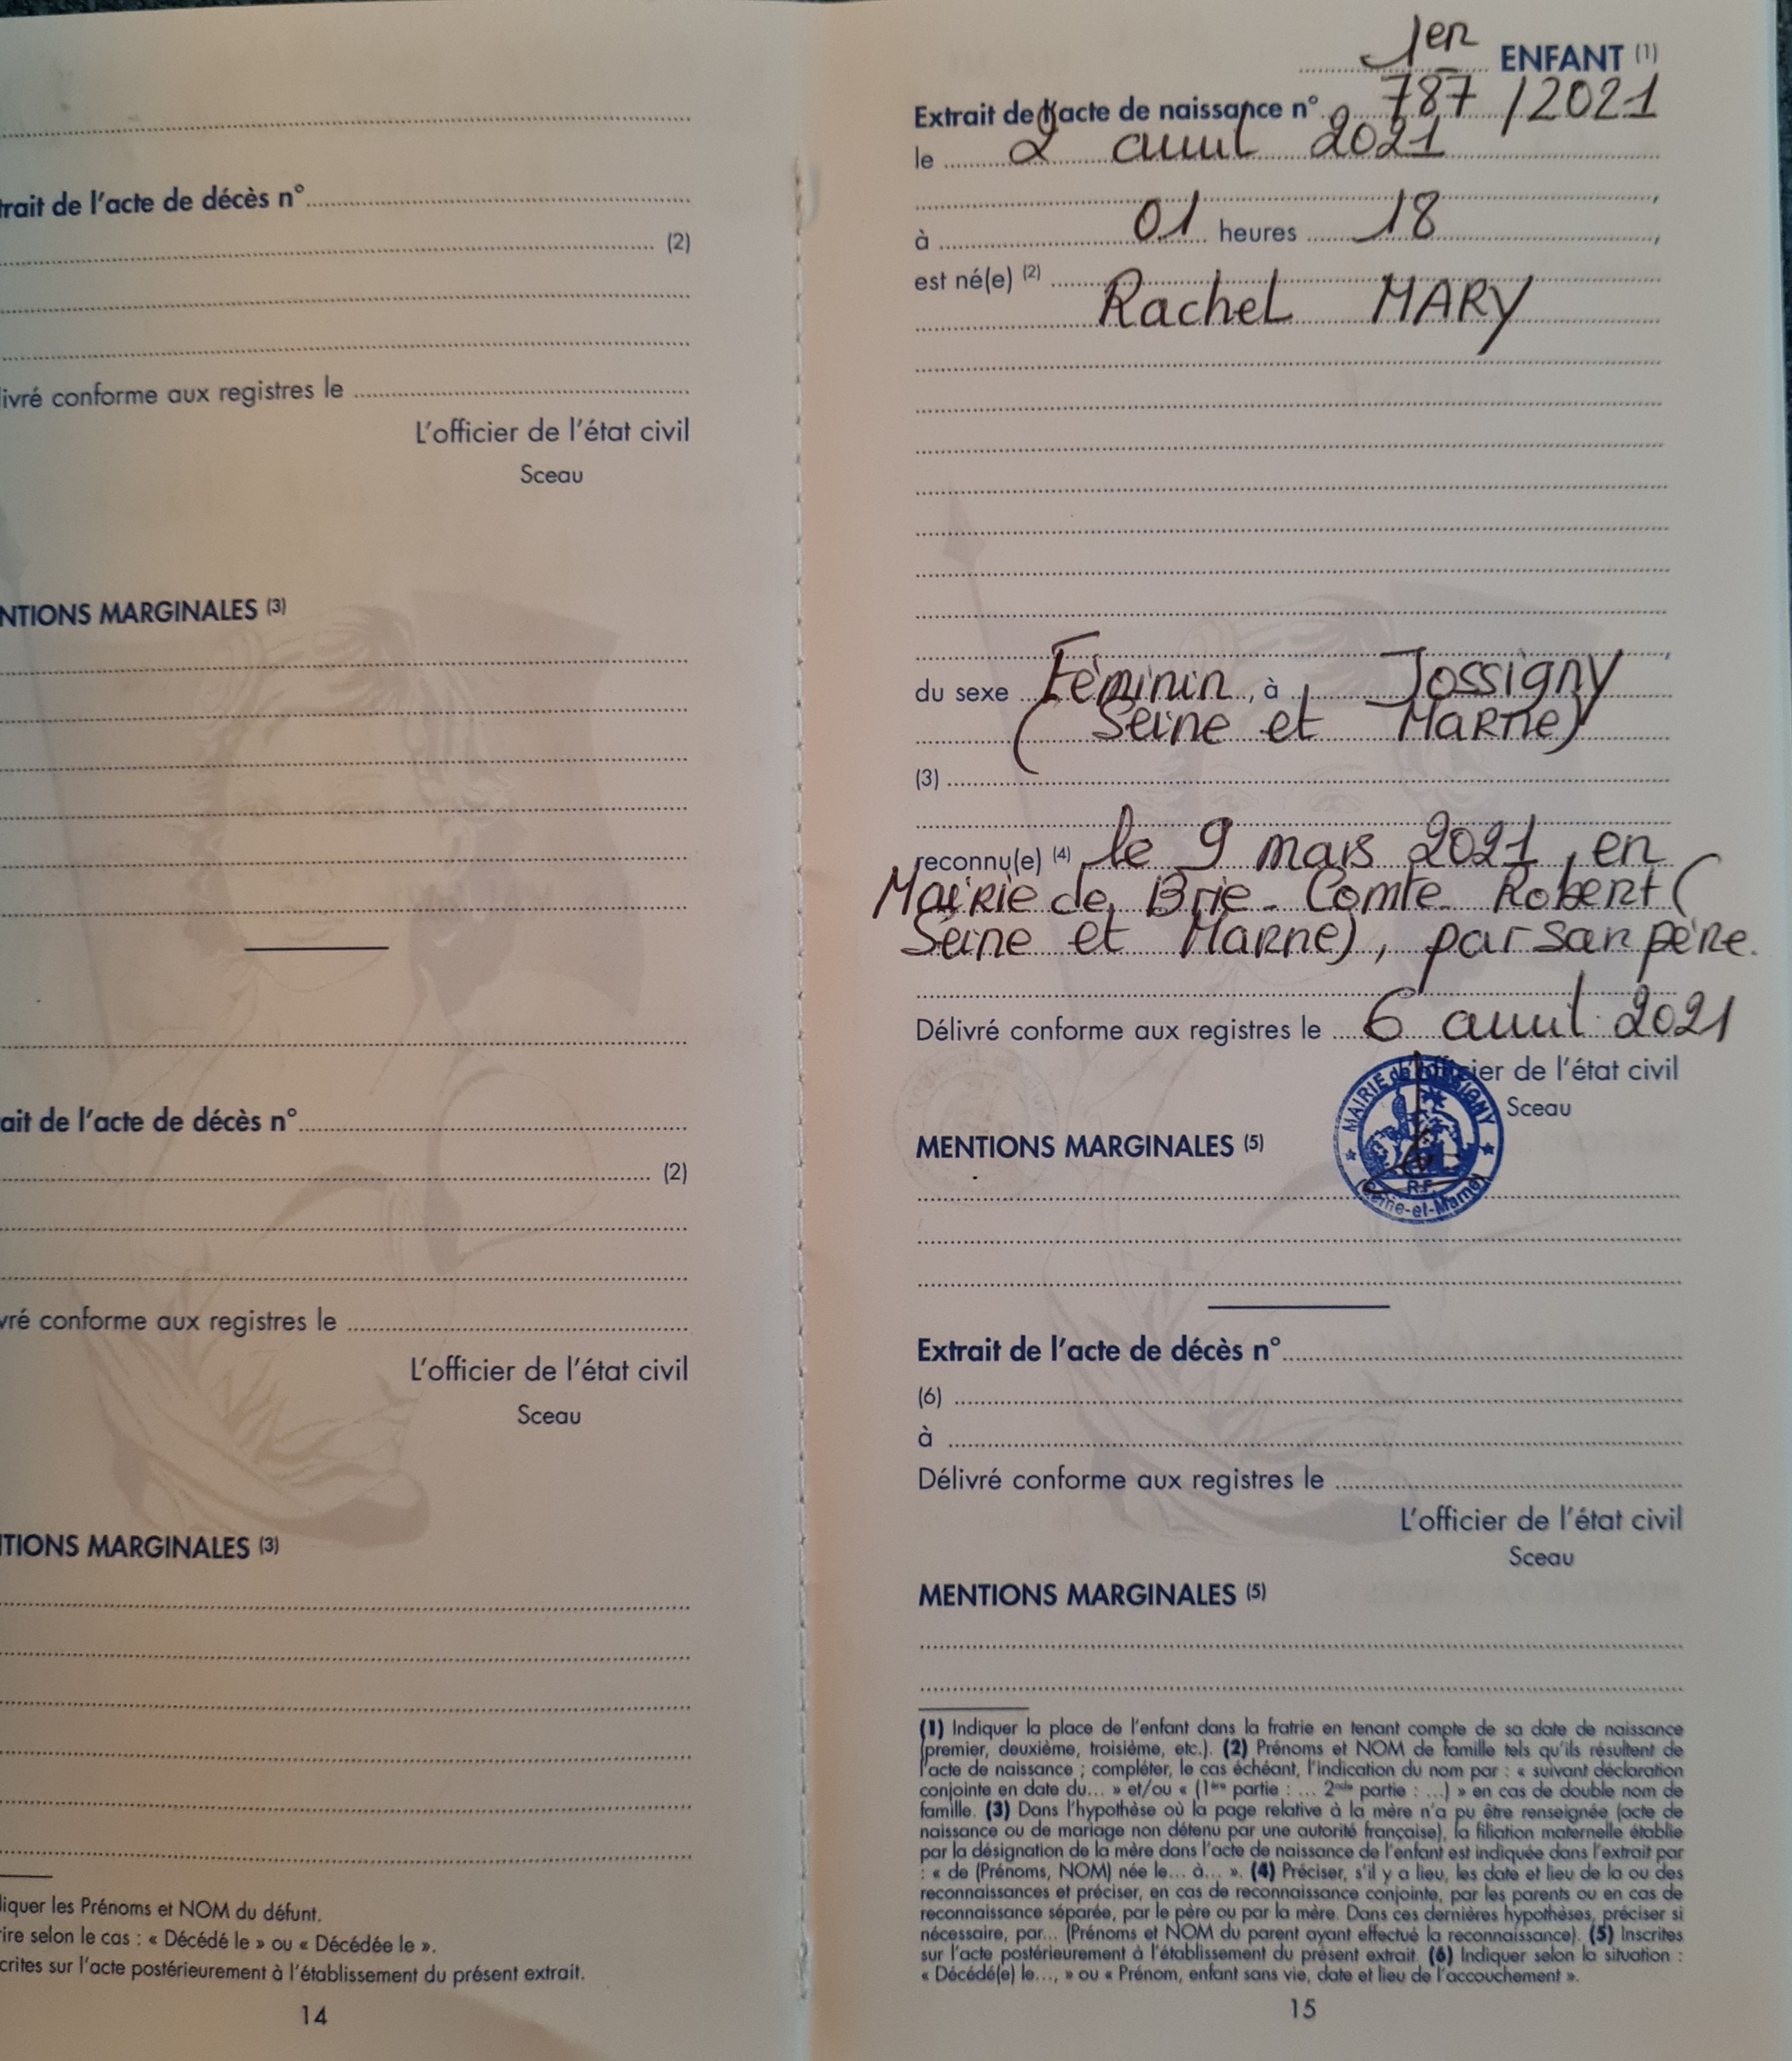 trait de l'acte de décès n°
(2)
livré conforme aux registres le
L'officier de l'état civil
Sceau
NTIONS MARGINALES (3)
ait de l'acte de décès n°
(2)
vré conforme aux registres le
L'officier de l'état civil
Sceau
TIONS MARGINALES (3)
diquer les Prénoms et NOM du défunt.
ire selon le cas : « Décédé le » ou « Décédée le ».
crites sur l'acte postérieurement à l'établissement du présent extrait.
14
1er ENFANT (1)
Extrait de l'acte de naissance n° 787 / 2021
le 2 avril 2021
,
à 01 heures 18 ,
est né(e) (2)
Rachel MARY
,
du sexe Féminin, à Jossigny
( Seine et Marne)
(3)
reconnu(e) (4) le 9 mars 2021, en
Mairie de Brie-Comte-Robert (
Seine et Marne), par son père.
Délivré conforme aux registres le 6 avril 2021
L'officier de l'état civil
Sceau
MAIRIE de JOSSIGNY
R.F.
(Seine-et-Marne)
MENTIONS MARGINALES (5)
Extrait de l'acte de décès n°
(6)
à
Délivré conforme aux registres le
L'officier de l'état civil
Sceau
MENTIONS MARGINALES (5)
(1) Indiquer la place de l'enfant dans la fratrie en tenant compte de sa date de naissance
(premier, deuxième, troisième, etc.). (2) Prénoms et NOM de famille tels qu'ils résultent de
l'acte de naissance ; compléter, le cas échéant, l'indication du nom par : « suivant déclaration
conjointe en date du... » et/ou « (1ère partie : ... 2nde partie : ...) » en cas de double nom de
famille. (3) Dans l'hypothèse où la page relative à la mère n'a pu être renseignée (acte de
naissance ou de mariage non détenu par une autorité française), la filiation maternelle établie
par la désignation de la mère dans l'acte de naissance de l'enfant est indiquée dans l'extrait par
: « de (Prénoms, NOM) née le... à... ». (4) Préciser, s'il y a lieu, les date et lieu de la ou des
reconnaissances et préciser, en cas de reconnaissance conjointe, par les parents ou en cas de
reconnaissance séparée, par le père ou par la mère. Dans ces dernières hypothèses, préciser si
nécessaire, par... (Prénoms et NOM du parent ayant effectué la reconnaissance). (5) Inscrites
sur l'acte postérieurement à l'établissement du présent extrait. (6) Indiquer selon la situation :
« Décédé(e) le..., » ou « Prénom, enfant sans vie, date et lieu de l'accouchement ».
15